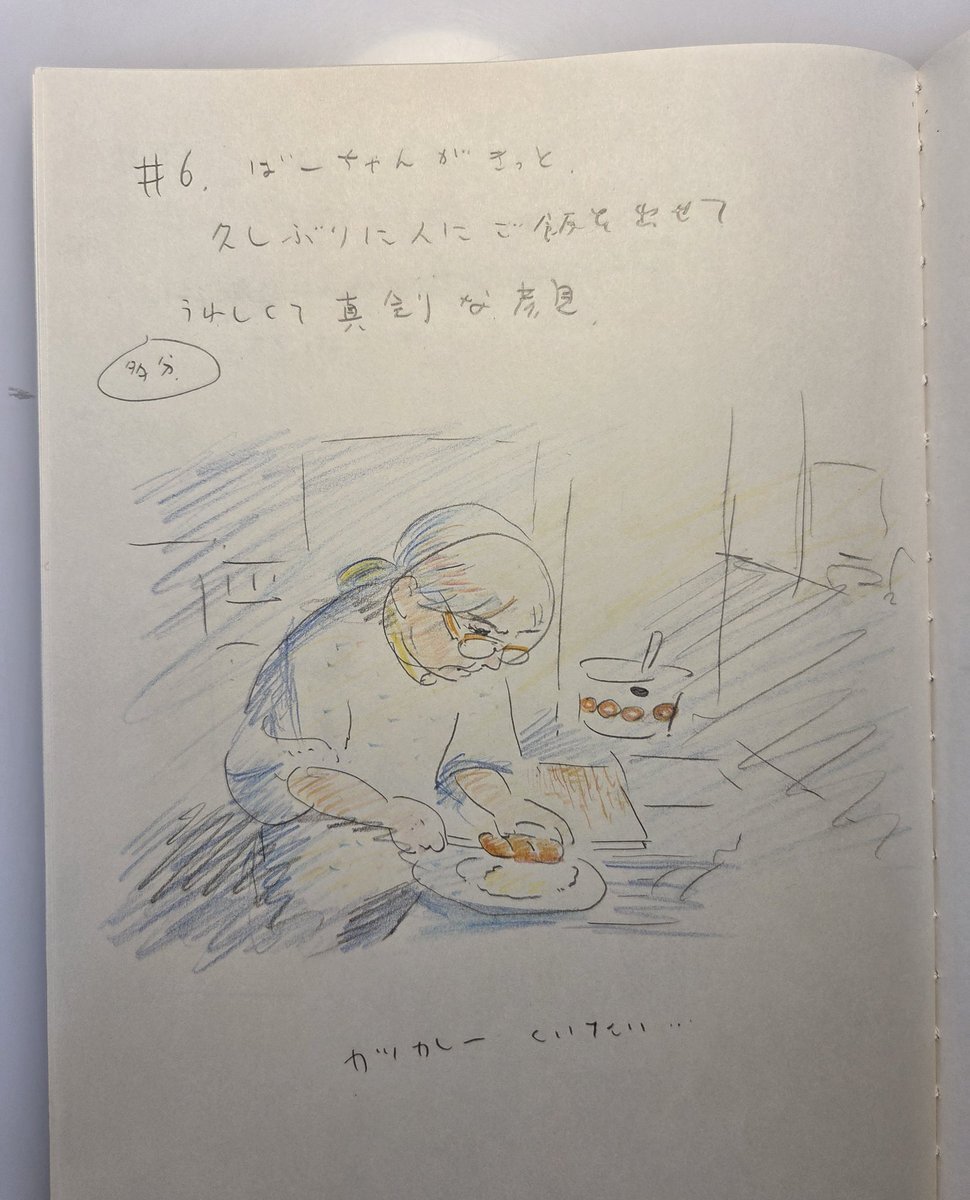 #6. ばーちゃんがきっと、
久しぶりに人にご飯を出せて
うれしくて真剣な顔。
多分。
カツカレー くいてい…